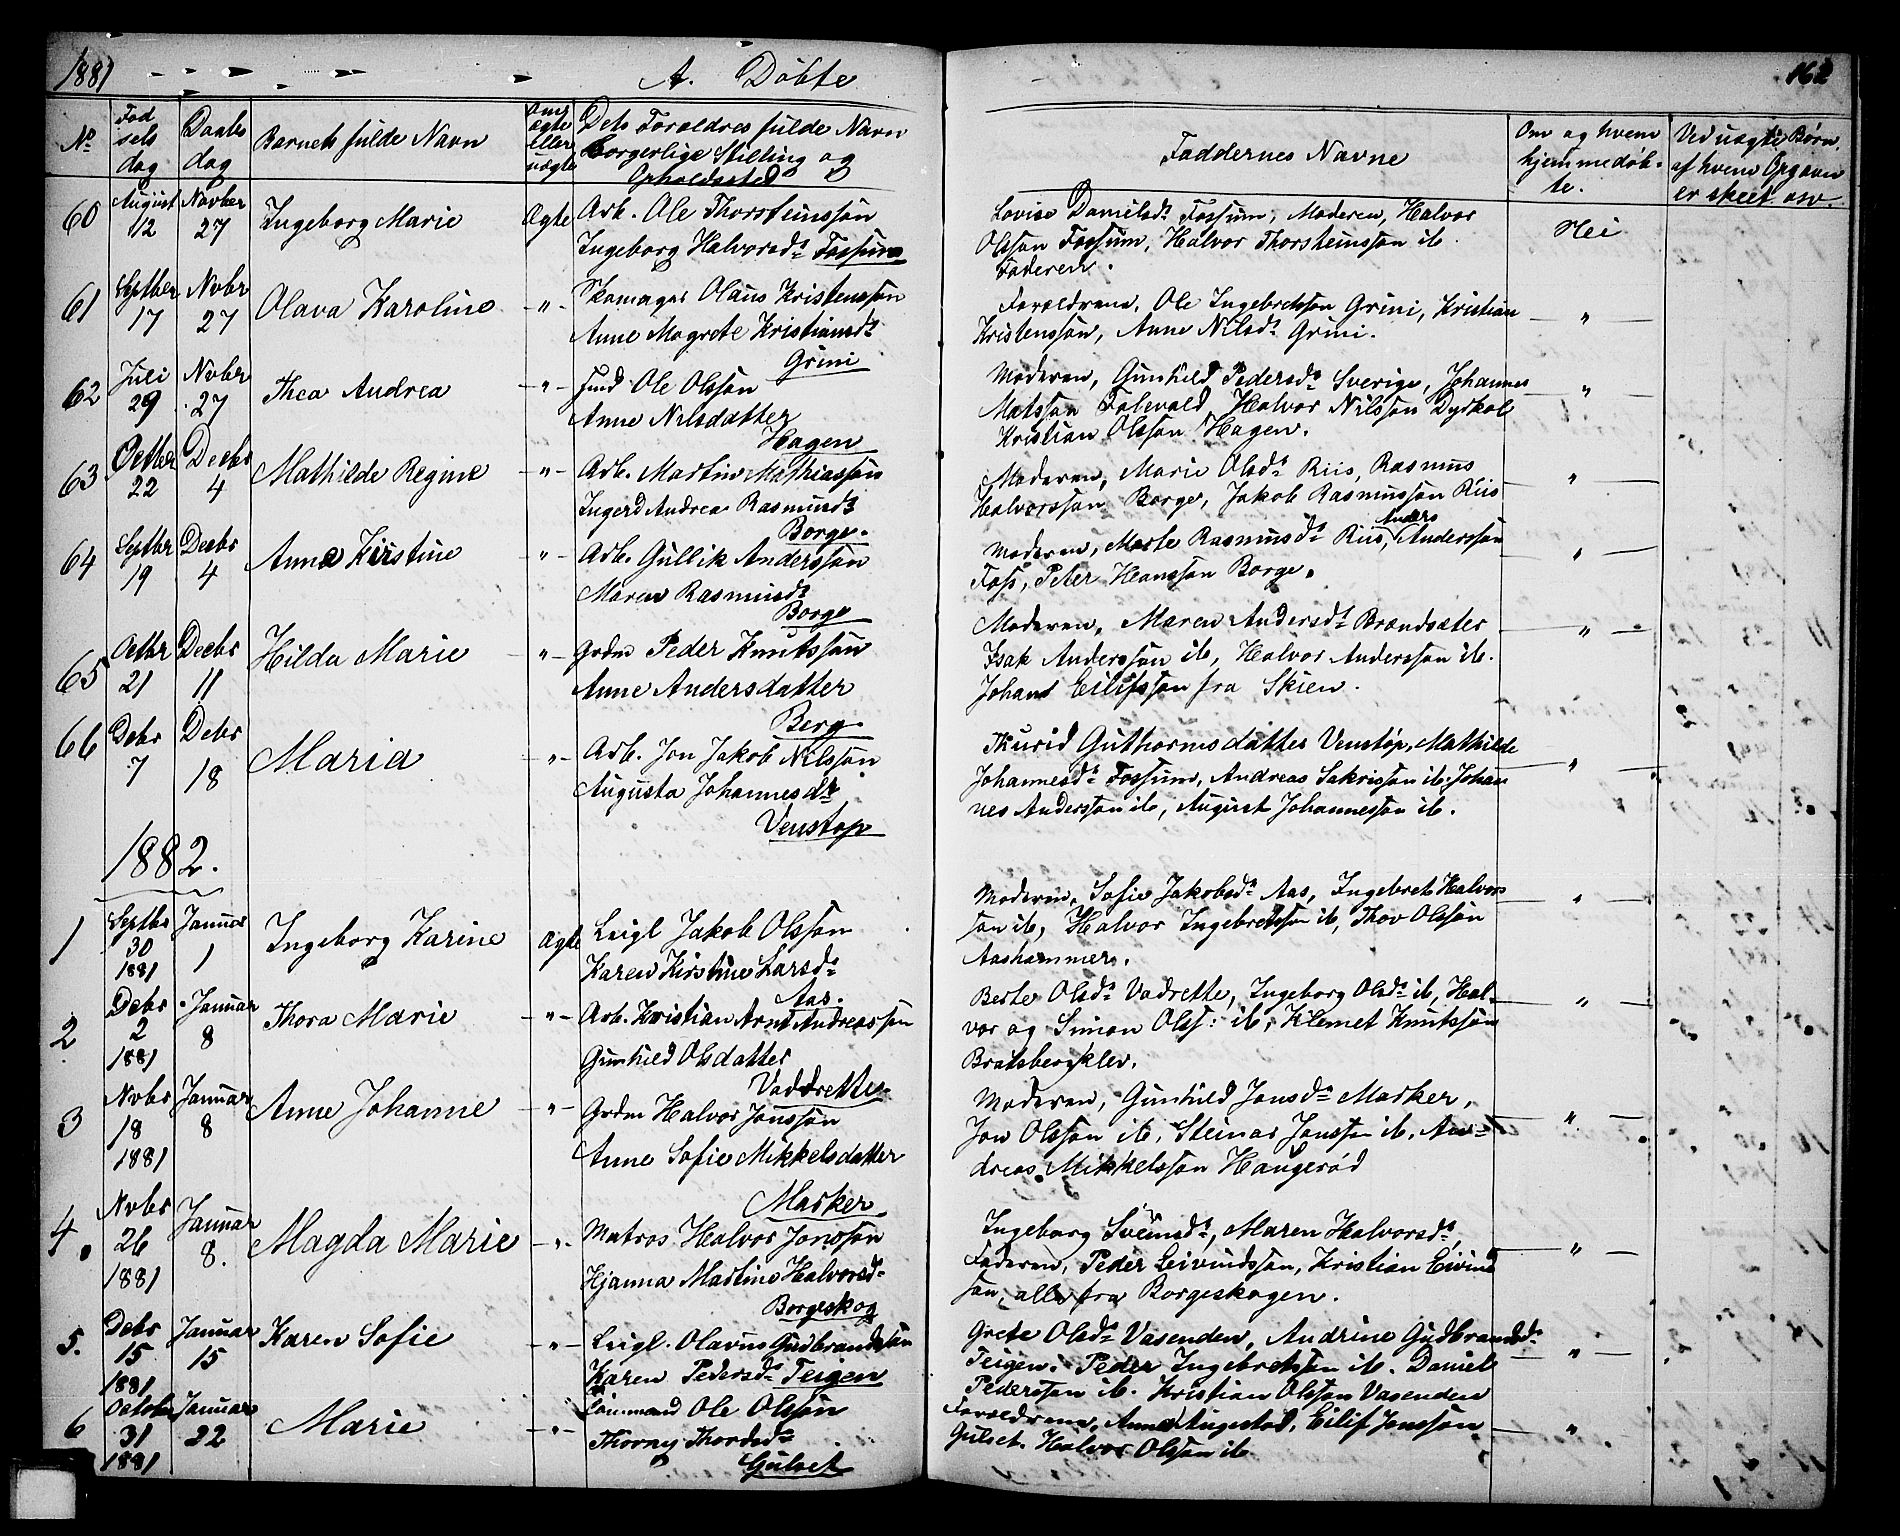 1881
A. Döbte
162
No
Fød
sels
dag
Daabs
dag
Barnets fulde Navn
Om
ægte
eller
uægte
Dets Forældres fulde Navn
borgerlige Stilling og
Opholdssted
Faddernes Navne
Om og hvem
hjemmedöb-
te.
Ved uægte Børn
af hvem Opgaven
er skeet osv.
60 August 12 Novber 27 Ingeborg Marie Ægte Arb. Ole Thorsteinssön
Ingeborg Halvorsdr Fossum
Lovise Danielsdr Fossum, Moderen, Halvor
Olsson Fossum, Halvor Thorsteinsson ib.
Faderen.
Nei
61 Septber 17 Nvbr 27 Olava Karoline -"- Skomager Olaus Kristenssön
Anne Magrete Kristiansdr
Grini
Forældrene, Ole Ingebretsson Grini, Kristian
Kristenssön, Anne Nilsdr Grini.
"
62 Juli 29 Nvbr 27 Thea Andrea -"- Ole Olsson
Anne Nilsdatter
Hagen
Moderen, Gunhild Pedersdr Sverige, Johannes
Matsson Falevald Halvor Nilsson Dyrkol
Kristian Olsson Hagen.
"
63 Octber 22 Decbr 4 Mathilde Regine -"- Arb. Martin Mathiassön
Ingerd Andrea Rasmusdr
Borge.
Moderen, Marie Olsdr Riis, Rasmus
Halvorsson Borge, Jakob Rasmusson Riis
"
64 Septbr 19 Decbr 4 Anne Kirstine -"- Arb. Gullik Anderssön
Maren Rasmusdr
Borge
Moderen, Marte Rasmusdr Riis, Anders Andersson
Foss, Peter Hansson Borge.
"
65 Octbr 21 Decbr 11 Hilda Marie -"- Grdm Peder Knutsson
Anne Andersdatter
Berg
Moderen, Maren Andersdr Brændsæter
Isak Anderssön ib, Halvor Andersson ib.
Johans Eilifsson fra Skien.
"
66 Debr 7 Debr 18 Maria -"- Arb. Jon Jakob Nilsson
Augusta Johannesdr
Venstøp
Thurid Guthormsdatter Venstøp, Mathilde
Johannesdr Fossum, Andreas Sakrisson ib. Johan
nes Andersson ib, August Johannesson ib.
"
1882.
1 Septbr 30 1881 Januar 1 Ingeborg Karine Ægte Leigl Jakob Olsson
Karen Kirstine Larsdr
Aas.
Moderen, Sofie Jakobsdr Aas, Ingebret Halvors
son ib, Halvor Ingebretsson ib, Thov Olsson
Aashammer.
"
2 Debr 2 1881 Januar 8 Thora Marie -"- Arb. Kristian Arnt Andreassen
Gunhild Olsdatter
Vadrette
Berte Olsdr Vadrette, Ingeborg Olsdr ib, Hal-
vor og Simon Olss: ib, Klemet Knutsson
Bratsbergklev.
"
3 Nvbr 18 1881 Januar 8 Anne Johanne -"- Grdm Halvor Jonssön
Anne Sofie Mikkelsdatter
Marker
Moderen, Gunhild Jonsdr Marker,
Jon Olsson ib, Steinar Jonsson ib, An-
dreas Mikkelsson Haugerød
"
4. Nvbr 26 1881 Januar 8. Magda Marie -"- Matros Halvor Jonsson
Hjanna Martine Halvorsdr
Borgeskog
Ingeborg Sveinsdr, Maren Halvorsdr
Faderen, Peder Eivindsson, Kristian Eivind
son, alle fra Borgeskogen.
"
5. Debr 15 1881 Januar 15 Karen Sofie -"- Leigl. Olavus Gudbrandsson
Karen Pedersdr Teigen
Grete Olsdr Vasenden, Andrine Gudbrandsdr
Teigen. Peder Ingebretsson ib. Daniel
Pedersson ib. Kristian Olsson Vasenden
"
6 October 31 1881 Januar 22 Marie -"- Ole Olsson
Thorny Thordsdr
Gulset
Forældrene, Anne Augestad, Eilif Jonsson
Gulset. Halvor Olsson ib
"